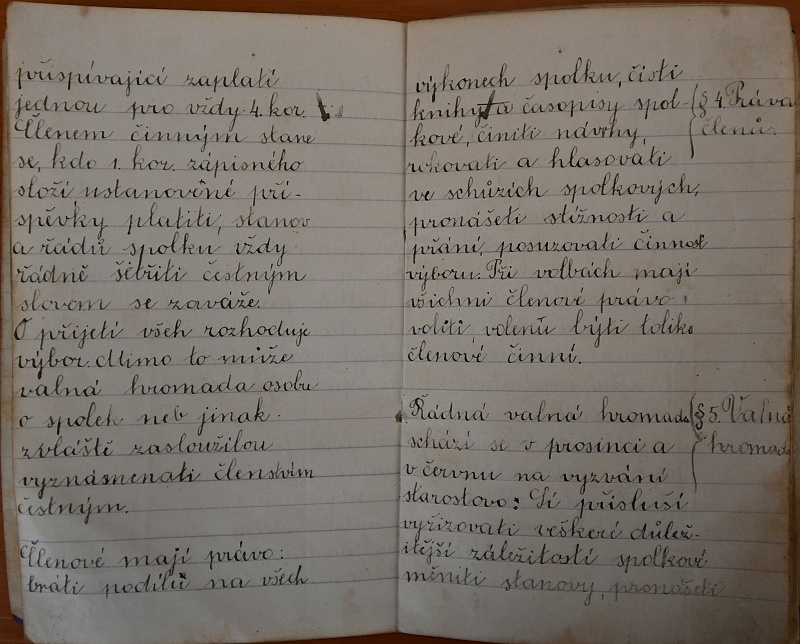 přispívající zaplatí
jednou pro vždy 4. kor.
Členem činným stane
se, kdo 1. kor. zápisného
složí ustanovené pří-
spěvky platiti, stanov
a řádů spolku vždy
řádně šetřiti čestným
slovem se zaváže.
O přijetí všech rozhoduje
výbor. Mimo to může
valná hromada osobu
o spolek neb jinak
zvláště zasloužilou
vyznamenati členstvím
čestným.
Členové mají právo:
bráti podílů na všech
výkonech spolku, čísti
knihy a časopisy spol-
kové, činiti návrhy,
rokovati a hlasovati
ve schůzích spolkových,
pronášeti stížnosti a
přání, posuzovati činnost
výboru. Při volbách mají
všichni členové právo
voliti, volenů býti toliko
členové činní.
§ 4. Práva
členů.
Řádná valná hromada
schází se v prosinci a
v červnu na vyzvání
starostovo: Jí přísluší
vyřizovati veškeré důlež-
itější záležitosti spolkové
měniti stanovy, pronášeti
§ 5. Valná
hromada